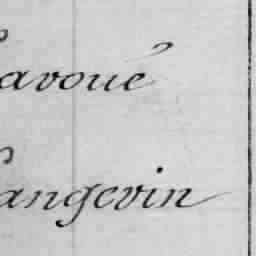 avoué
angevin